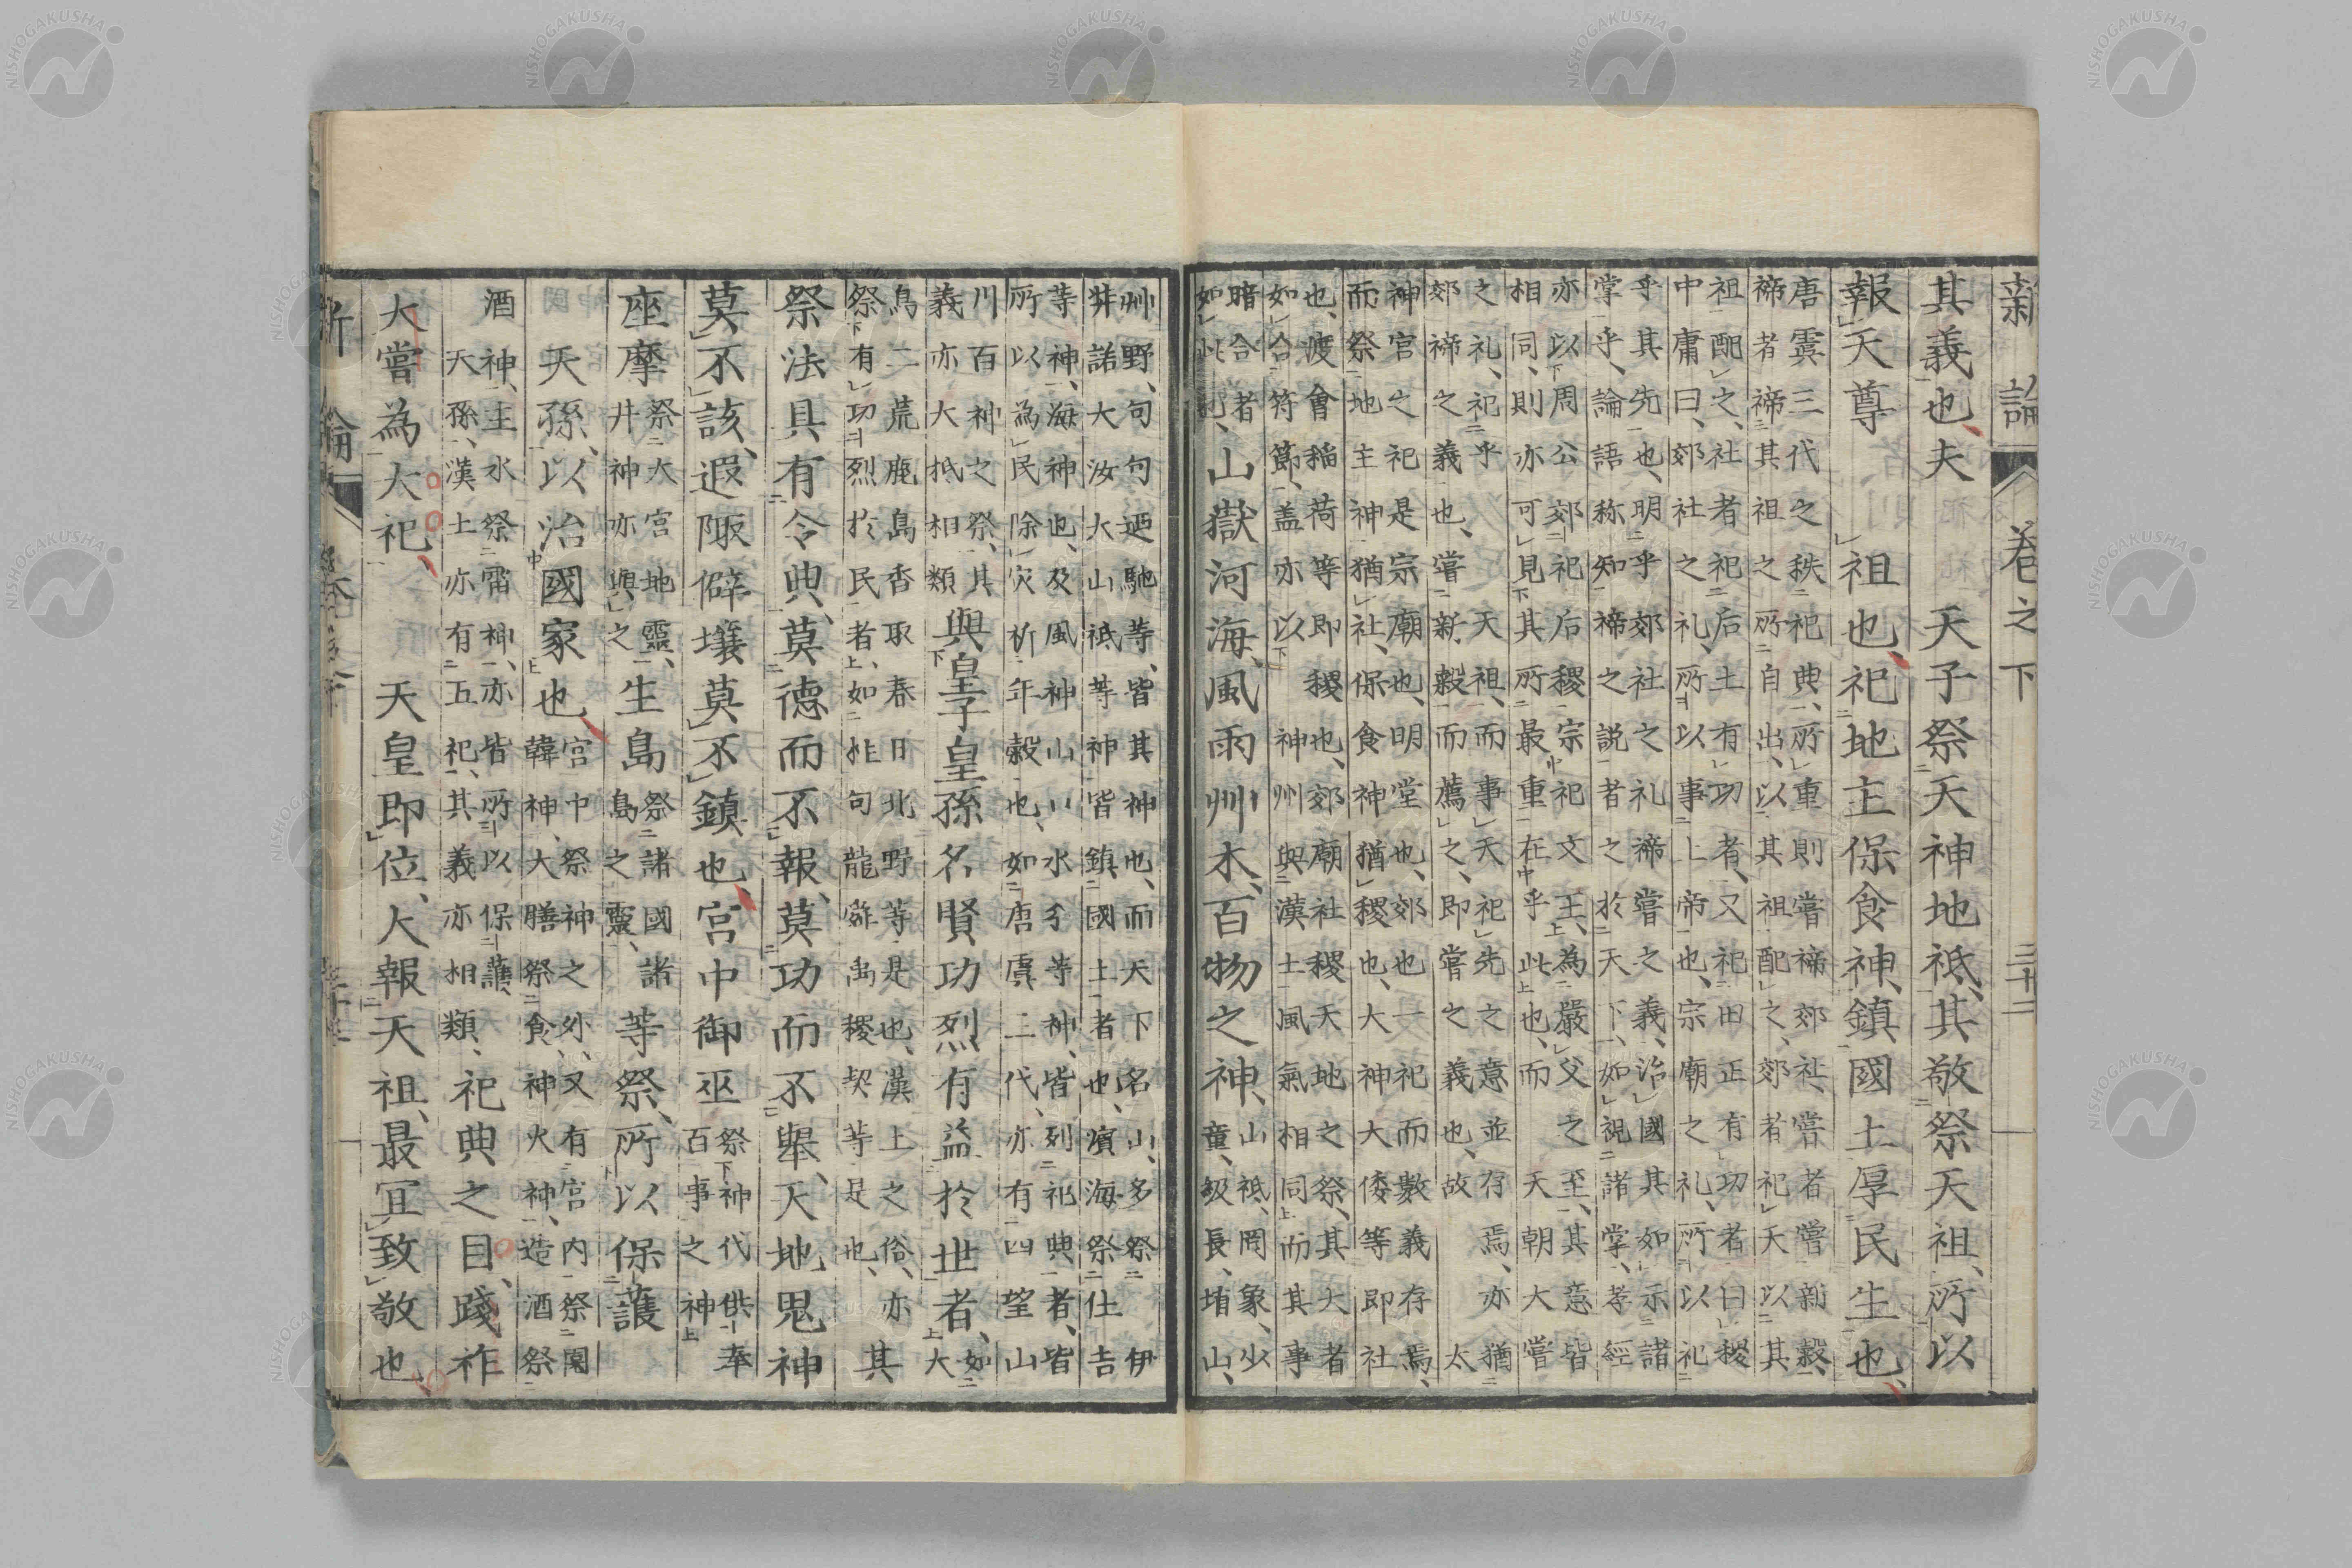 新論 卷之下 三十二
其義也、夫 天子祭天神地祇、其敬祭天祖、所以
報天尊 祖也、祀地主保食神、鎮國土厚民生也、
唐虞三代之秩祀典、所重則嘗禘郊社、嘗者嘗新穀、
禘者禘其祖之所自出、以其祖配之、郊者祀天以其
祖配之、社者祀后土有功者、又祀田正有功者曰稷
中庸曰、郊社之礼、所以事上帝也、宗廟之礼、所以祀
乎其先也、明乎郊社之礼禘嘗之義、治國其如示諸
掌乎、論語称知禘之説者之於天下、如視諸掌、孝經
亦以周公郊祀后稷宗祀文王、為嚴父之至、其意皆
相同、則亦可見其所最重在乎此也、而 天朝大嘗
之礼、祀乎 天祖、而事天祀先之意並存焉、亦猶
郊禘之義也、嘗新穀而薦之、即嘗之義也、故 太
神宮之祀是宗廟也、明堂也、郊也一祀而數義存焉、
而祭地主神猶社、保食神猶稷也、大神大倭等即社
也、渡會稲荷等即稷也、郊廟社稷天地之祭、其大者
如合符節、盖亦以 神州與漢土風氣相同、而其事
暗合者
如此也、
山嶽河海、風雨艸木、百物之神、
山祇、罔象、少
童、級長、埴山、
艸野、句句廼馳等、皆其神也、而天下名山、多祭伊
弉諾大汝大山祇等神皆鎮國土者也、濱海祭住吉
等神、海神也、及風神山川水分等神、皆列祀典者、皆
所以為民除災祈年穀也、如唐虞二代、亦有四望山
川百神之祭、其
義亦大抵相類
與皇子皇孫名賢功烈有益於世者、
如
大
鳥二荒鹿島香取春日北野等是也、漢土之俗、亦其
祭有功烈於民者、如句龍禹稷契等是也、
祭法具有令典、莫德而不報、莫功而不舉、天地鬼神
莫不該、遐陬僻壤莫不鎮也、宮中御巫
祭神代供奉
百事之神
座摩
祭大宮地靈、
井神亦與之
生島
祭諸國諸
島之靈、
等祭、所以保護
天孫、以治國家也
宮中祭神之外、又有宮内祭園
韓神、大膳祭食神火神、造酒祭
酒神、主水祭霜神、亦皆所以保護、
天孫、漢土亦有五祀、其義亦相類、
祀典之目、踐祚
大嘗為大祀、 天皇即位、大報天祖、最冝致敬也、
新論
NISHOGAKUSHA